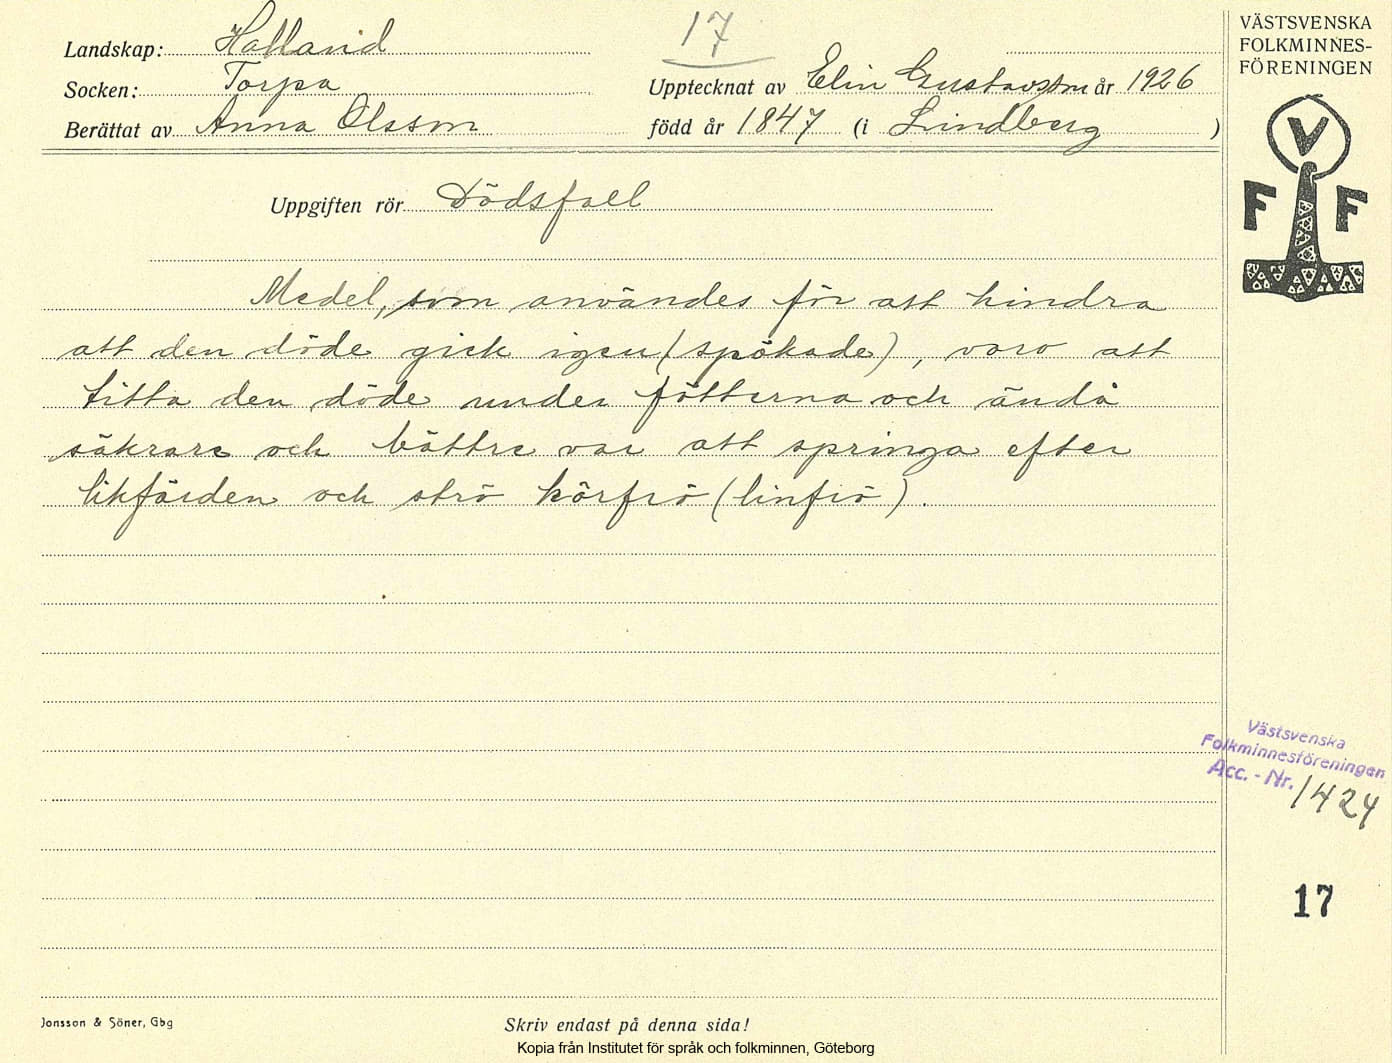 Landskap: Halland
17
VÄSTSVENSKA
FOLKMINNES-
FÖRENINGEN
Socken: Torpa
Upptecknat av Elin Gustavsson år 1926
Berättat av Anna Olsson
född år 1847 (i Lindberg)
V
F F
Uppgiften rör Dödsfall
Medel, som användes för att hindra
att den döde gick igen (spökade), voro att
titta den döde under fötterna och ändå
säkrare och bättre var att springa efter
likfärden och strö hörfrö (linfrö).
Västsvenska
Folkminnesföreningen
Acc. - Nr. 1424
17
Jonsson & Söner, Gbg
Skriv endast på denna sida!
Kopia från Institutet för språk och folkminnen, Göteborg